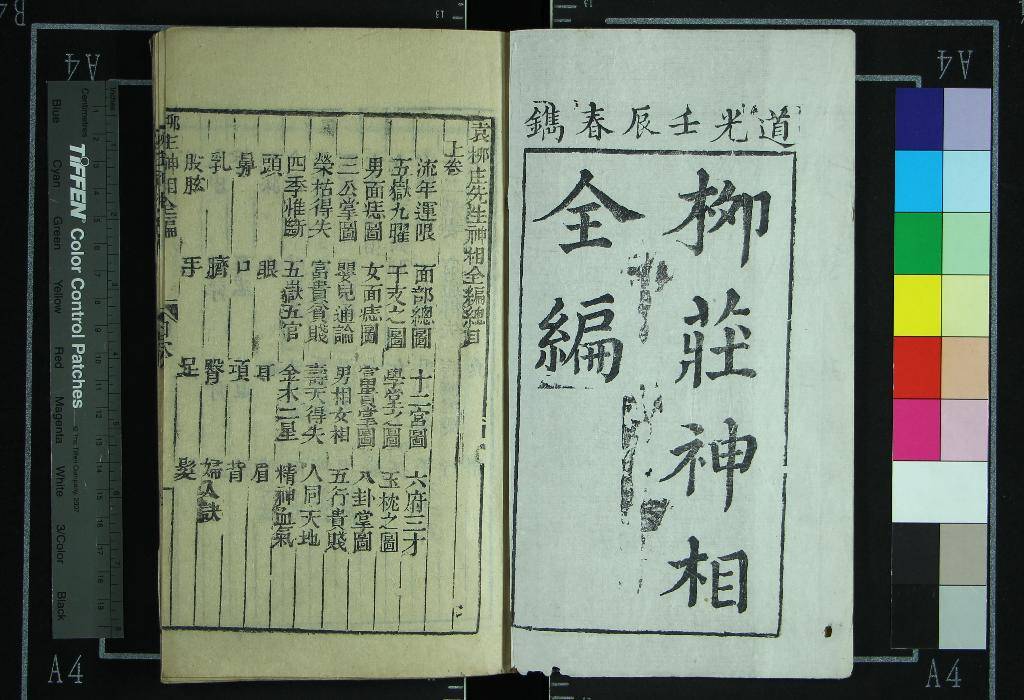 道光壬辰春鐫
柳莊神相
全編
袁柳庄先生神相全編總目
上卷
流年運限 面部總圖 十二宮圖 六府三才
五嶽九曜 干支之圖 學堂之圖 玉枕之圖
男面痣圖 女面痣圖 富貴掌圖 八卦掌圖
三公掌圖 嬰兒通論 男相女相 五行貴賤
榮枯得失 富貴貧賤 壽夭得失 人同天地
四季推斷 五嶽五官 金木二星 精神血氣
頭 眼 耳 眉
鼻 口 項 背
乳 臍 臀 婦人訣
股肱 手 足 髮
TIFFEN Color Control Patches
© The Tiffen Company, 2007
Centimetres
Inches
Blue
Cyan
Green
Yellow
Red
Magenta
White
3/Color
Black
A4
A4
A4
A4